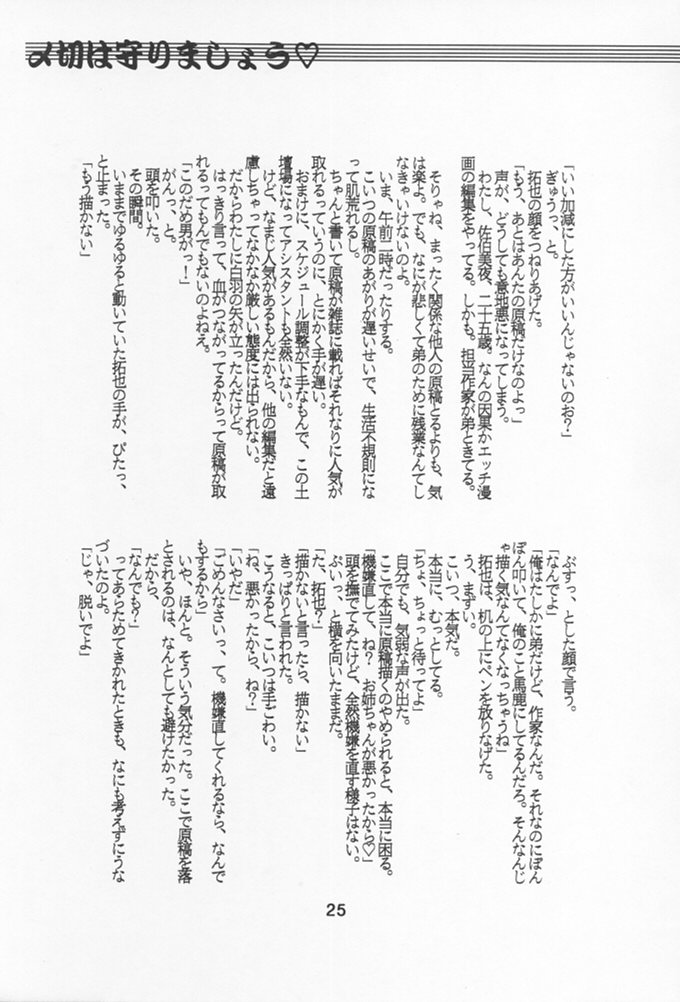 〆切は守りましょう♡
「いい加減にした方がいいんじゃないのお？」
ぎゅうっ、と。
拓也の顔をつねりあげた。
「もう、あとはあんたの原稿だけなのよっ」
声が、どうしても意地悪になってしまう。
わたし、佐伯美夜、二十五歳。なんの因果かエッチ漫
画の編集をやってる。しかも。担当作家が弟ときてる。
そりゃね、まったく関係な他人の原稿とるよりも、気
は楽よ。でも、なにが悲しくて弟のために残業なんてし
なきゃいけないのよ。
いま、午前二時だったりする。
こいつの原稿のあがりが遅いせいで、生活不規則にな
って肌荒れるし。
ちゃんと書いて原稿が雑誌に載ればそれなりに人気が
取れるっていうのに、とにかく手が遅い。
おまけに、スケジュール調整が下手なもんで、この土
壇場になってアシスタントも全然いない。
けど、なまじ人気があるもんだから、他の編集だと遠
慮しちゃってなかなか厳しい態度には出られない。
だからわたしに白羽の矢が立ったんだけど。
はっきり言って、血がつながってるからって原稿が取
れるってもんでもないのよねえ。
「このだめ男がっ！」
がんっ、と。
頭を叩いた。
その瞬間。
いままでゆるゆると動いていた拓也の手が、ぴたっ、
と止まった。
「もう描かない」
ぶすっ、とした顔で言う。
「なんでよ」
「俺はたしかに弟だけど、作家なんだ。それなのにぽん
ぽん叩いて、俺のこと馬鹿にしてるんだろ。そんなんじ
ゃ描く気なんてなくなっちゃうね」
拓也は、机の上にペンを放りなげた。
う、まずい。
こいつ、本気だ。
本当に、むっとしてる。
「ちょ、ちょっと待ってよ」
自分でも、気弱な声が出た。
ここで本当に原稿描くのやめられると、本当に困る。
「機嫌直して、ね？　お姉ちゃんが悪かったから♡」
頭を撫でてみたけど、全然機嫌を直す様子はない。
ぷいっ、と横を向いたままだ。
「た、拓也？」
「描かないと言ったら、描かない」
きっぱりと言われた。
こうなると、こいつは手ごわい。
「ね、悪かったから、ね？」
「いやだ」
「ごめんなさいっ、て。機嫌直してくれるなら、なんで
もするから」
いや、ほんと。そういう気分だった。ここで原稿を落
とされるのは、なんとしても避けたかった。
だから。
「なんでも？」
ってあらためてきかれたときも、なにも考えずにうな
づいたのよ。
「じゃ、脱いでよ」
25